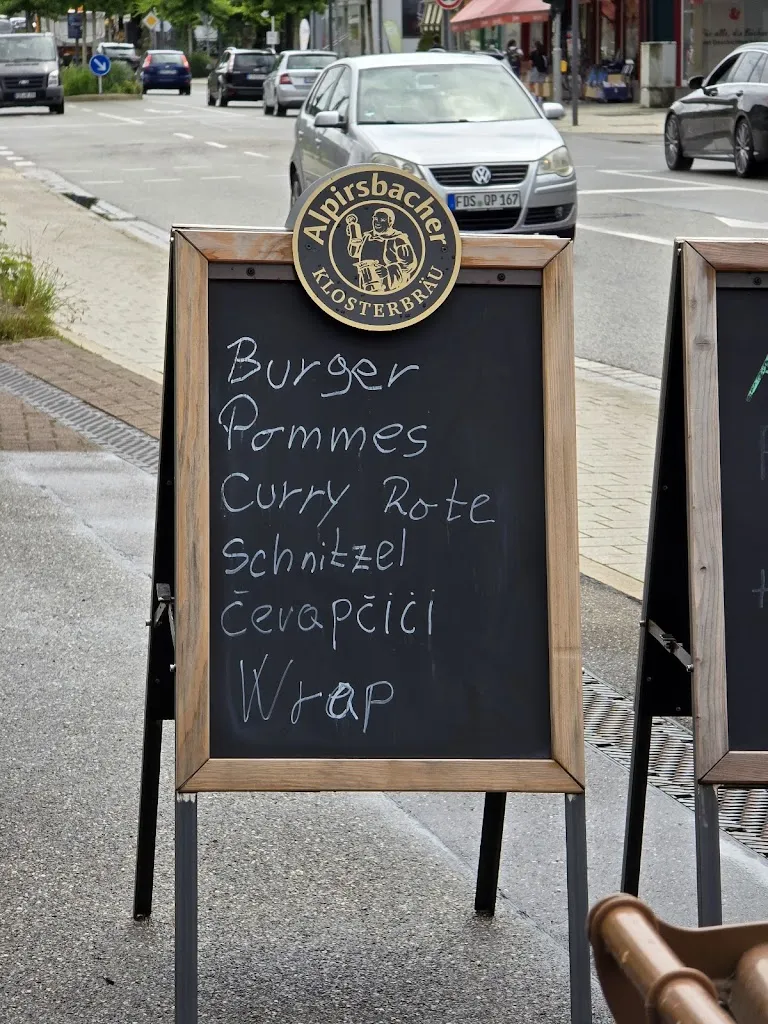 Alpirsbacher
KLOSTERBRÄU
FDS QP 167
Burger
Pommes
Curry Rote
Schnitzel
čevapčići
Wrap